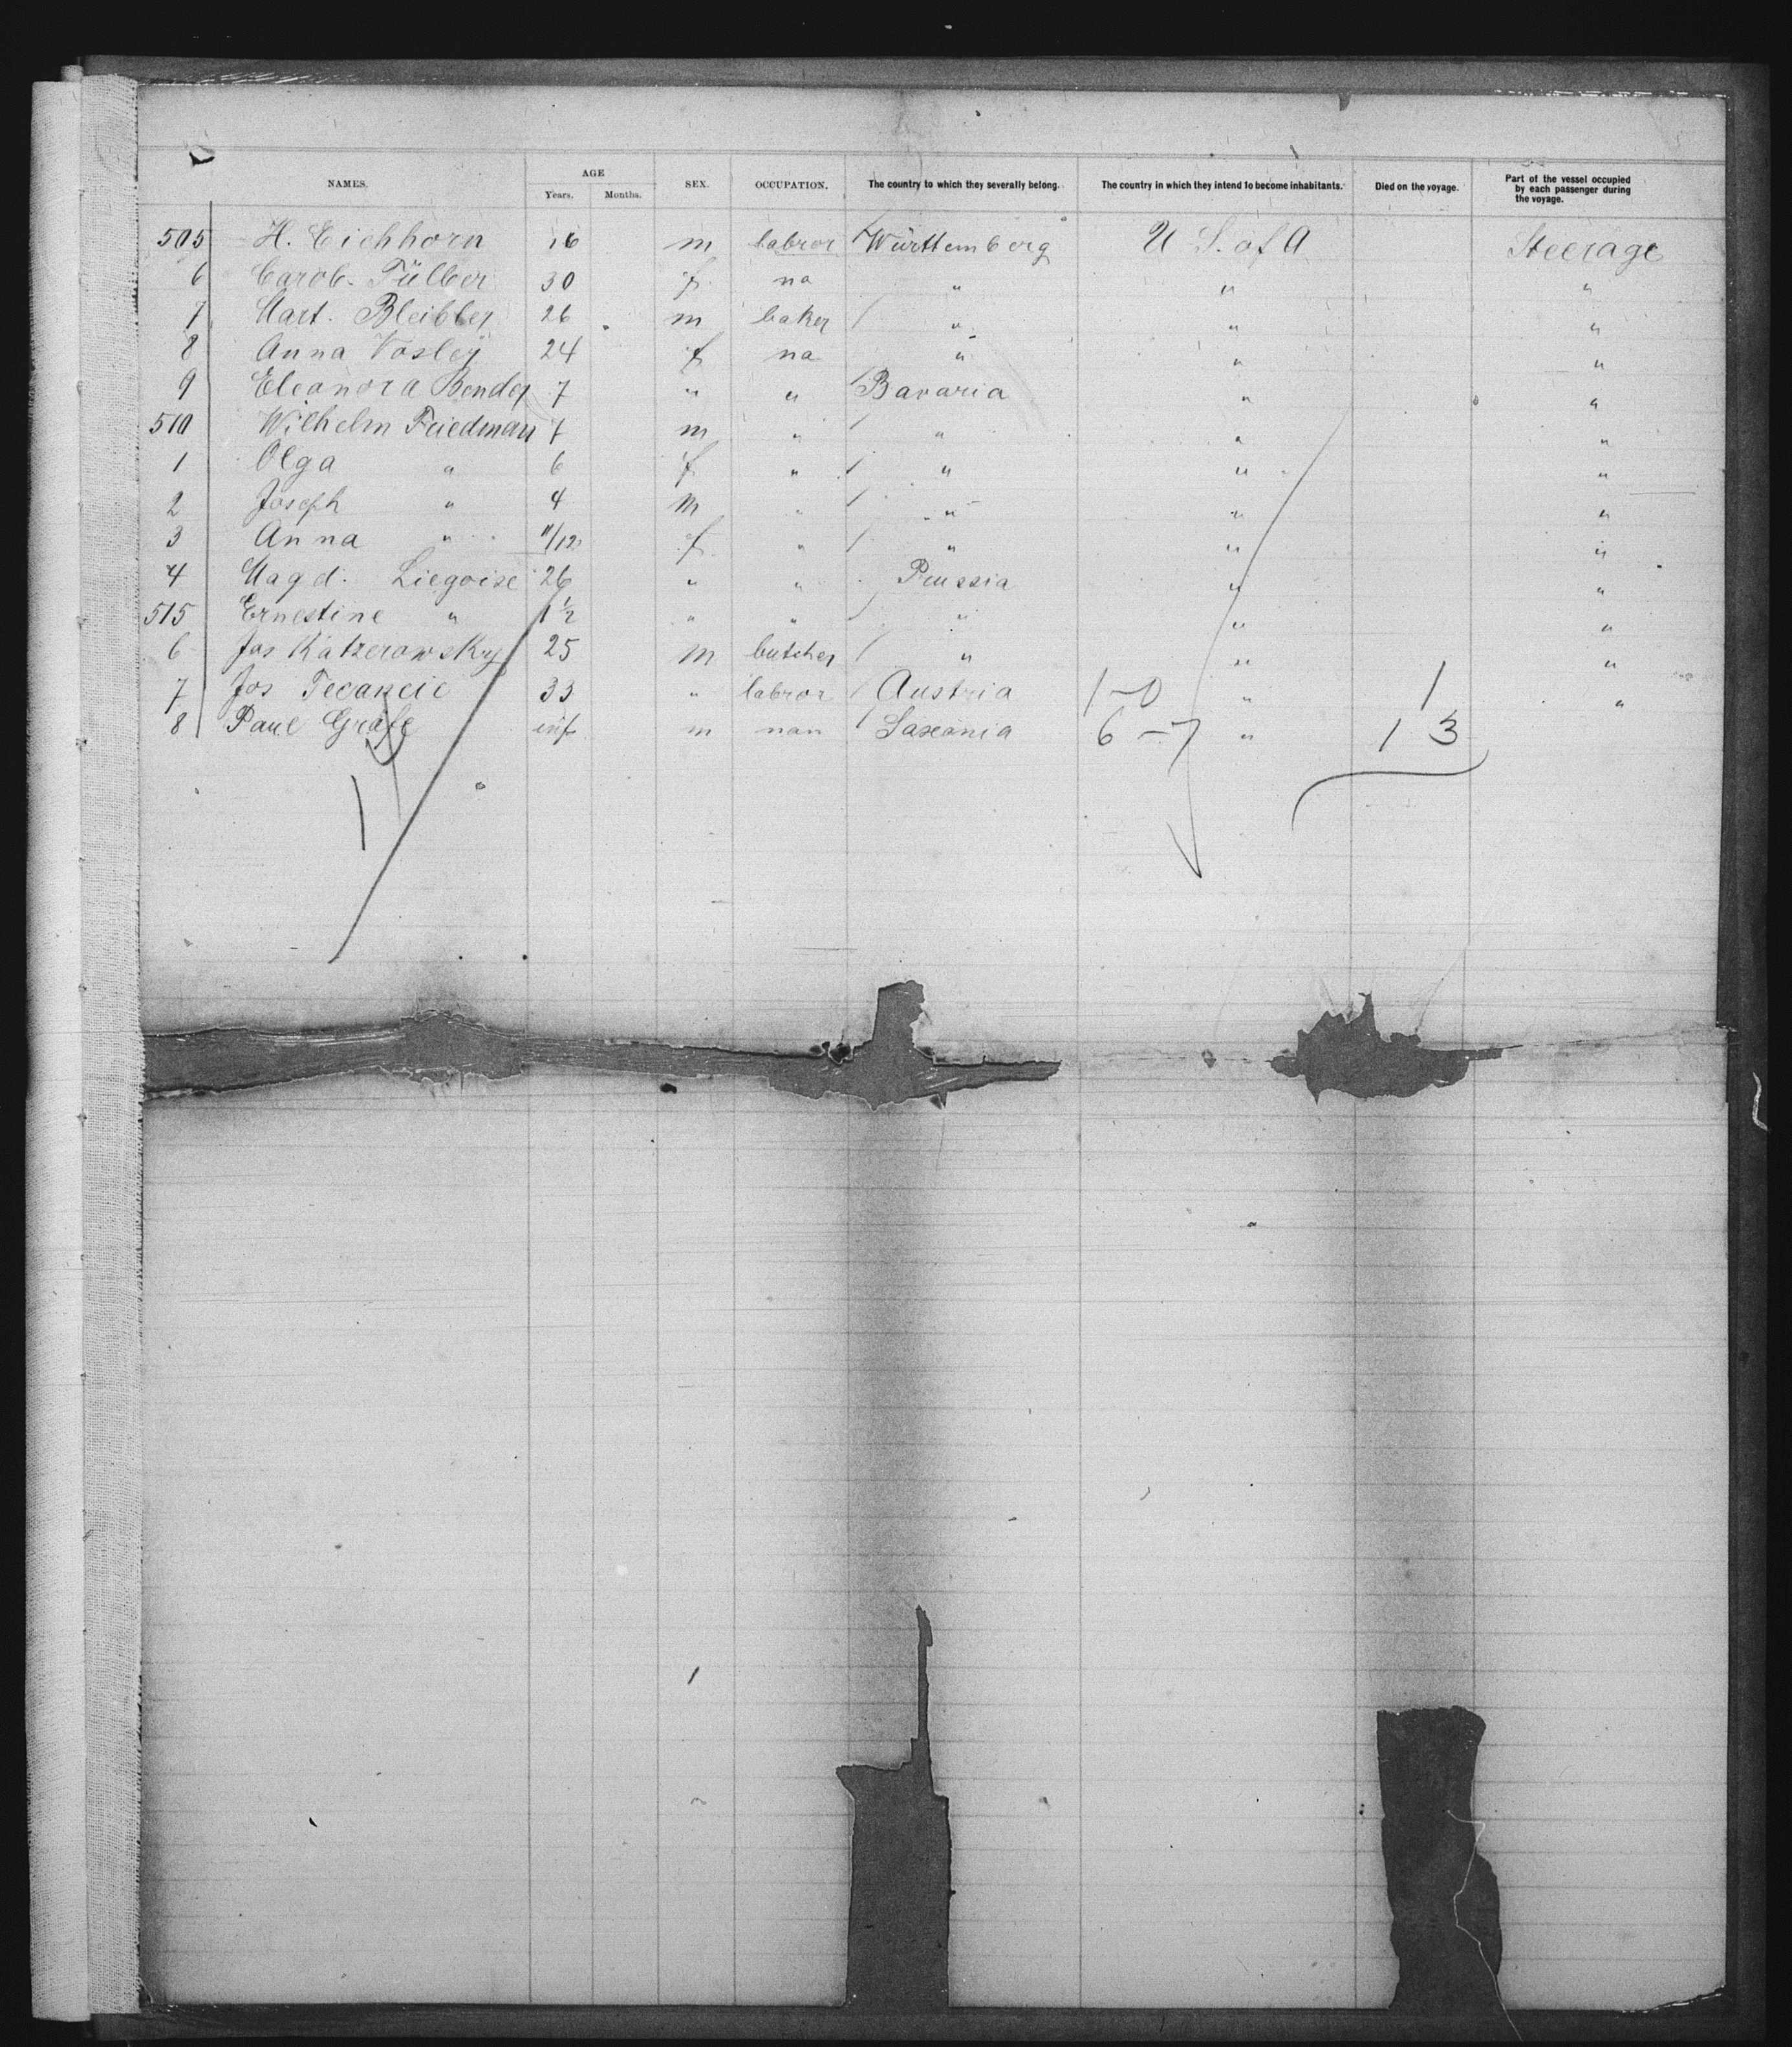 NAMES. AGE Years. Months. SEX. OCCUPATION. The country to which they severally belong. The country in which they intend to become inhabitants. Died on the voyage. Part of the vessel occupied by each passenger during the voyage.
505 H. Eichhorn 16 m labror Württemberg U S. of A Steerage
6 Carol. Fülber 30 f. na " " "
7 Mart. Bleibler 26 m baker " " "
8 Anna Vosley 24 f na " " "
9 Eleanora Bender 7 " " Bavaria " "
510 Wilhelm Friedman 7 m " " " "
1 Olga " 6 f " " " "
2 Joseph " 4 m " " " "
3 Anna " 11/12 f. " " " "
4 Magd. Liegoise 26 " " Prussia " "
515 Ernestine " 1 1/2 " " " " "
6 Jos Katzerowsky 25 m butcher " " "
7 Jos 33 " labror Austria 1-0 " 1 "
8 Paul Gräfe inf. m nan Saxonia 6-7 " 13